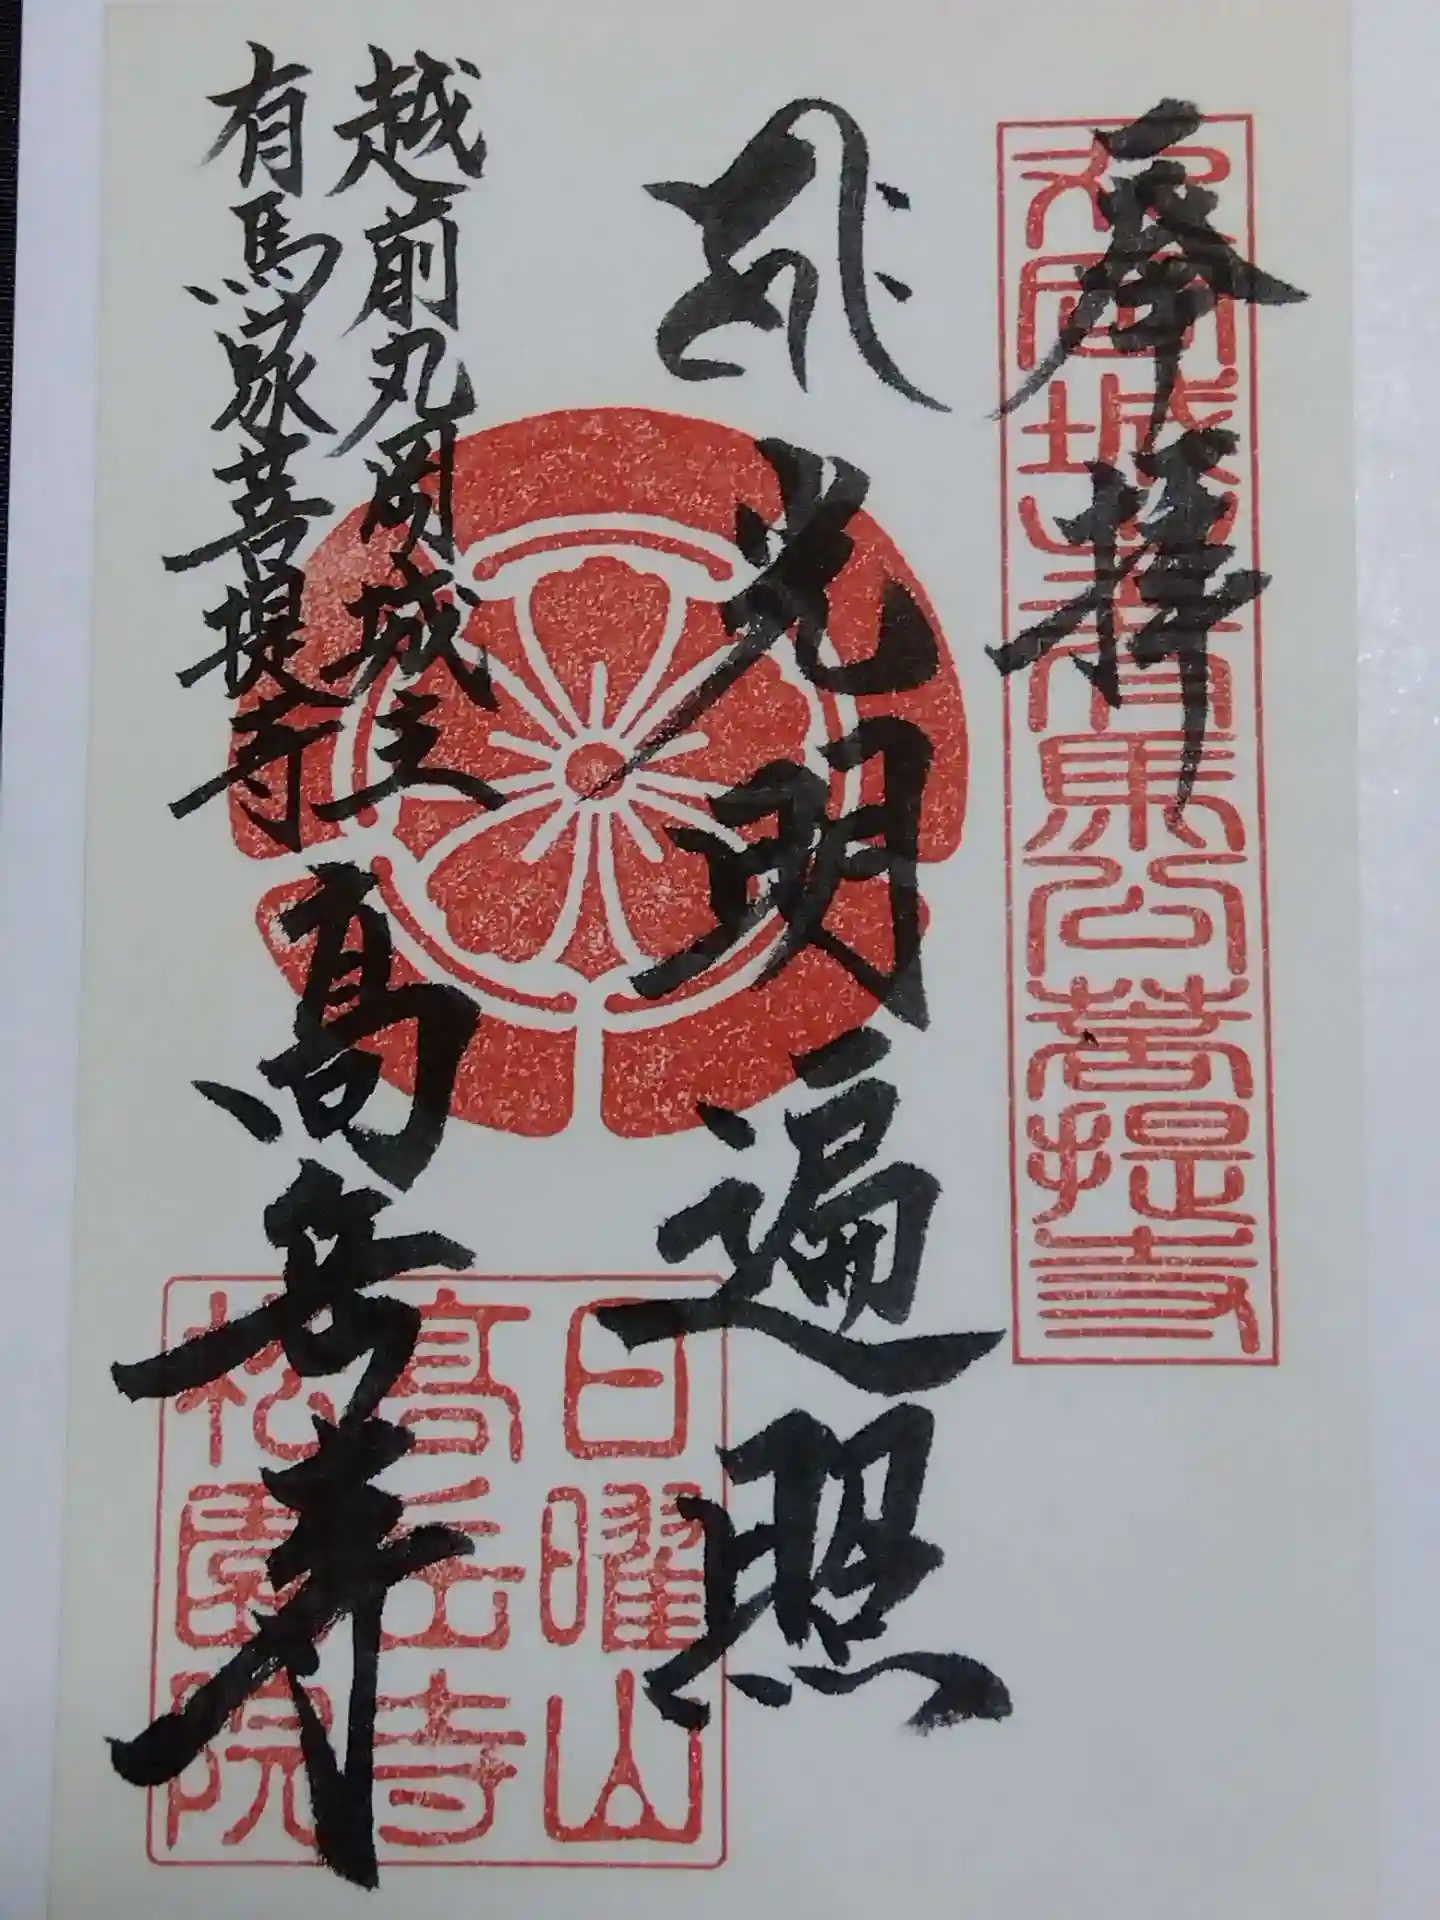 奉拝
丸岡城主有馬公菩提寺
光明遍照
越前丸岡城主
有馬家菩提寺
高岳寺
日曜山
高岳寺
松園院